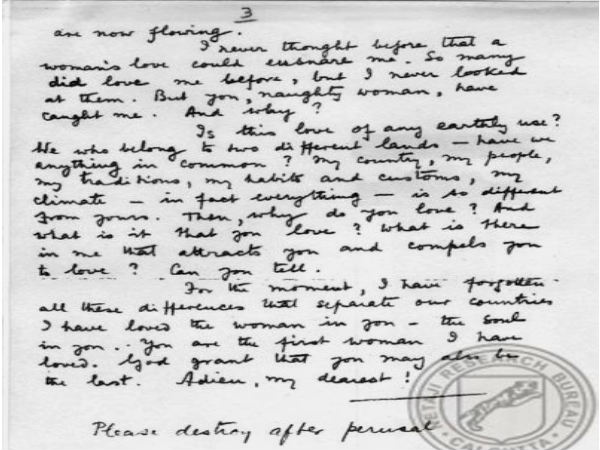 3
are now flowing.
I never thought before that a
woman's love could ensnare me. So many
did love me before, but I never looked
at them. But you, naughty woman, have
caught me. And why?
Is this love of any earthly use?
We who belong to two different lands – have we
anything in common? My country, my people,
my traditions, my habits and customs, my
climate – in fact everything – is so different
from yours. Then, why do you love? And
what is it that you love? What is there
in me that attracts you and compels you
to love? Can you tell.
For the moment, I have forgotten
all these differences that separate our countries
I have loved the woman in you – the soul
in you.. You are the first woman I have
loved. God grant that you may also be
the last. Adieu, my dearest!
Please destroy after perusal
NETAJI RESEARCH BUREAU
CALCUTTA